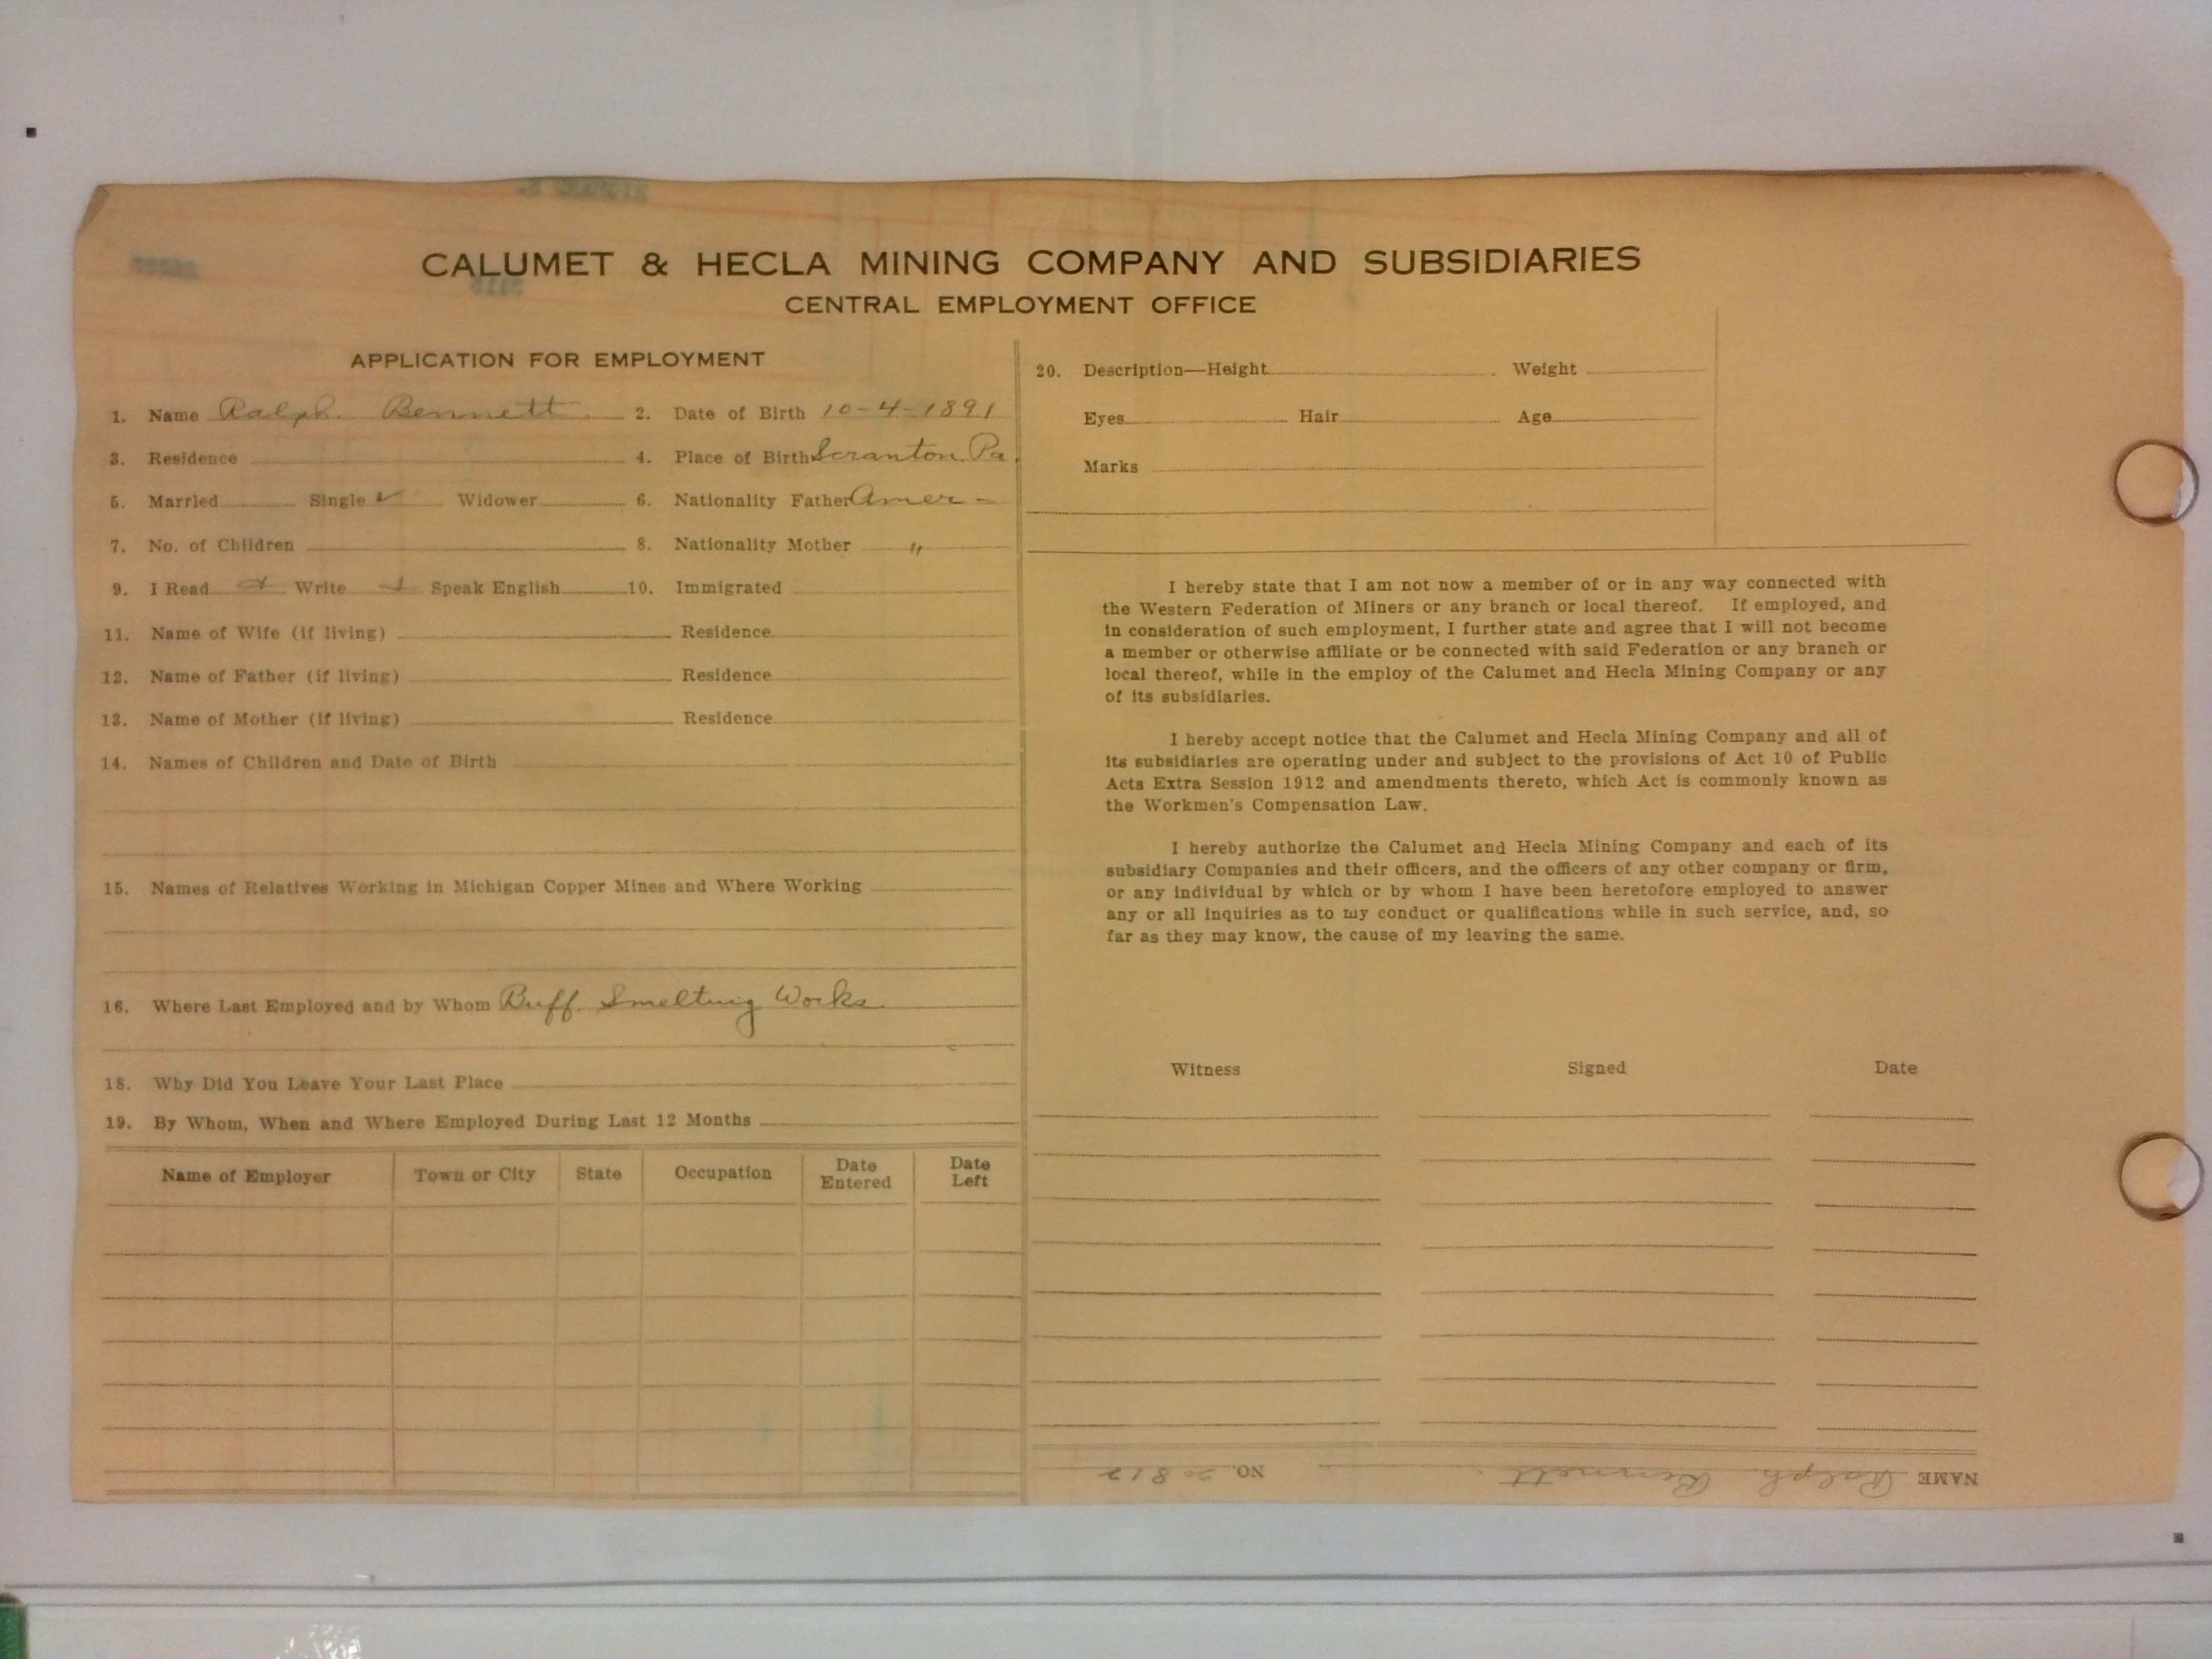 CALUMET & HECLA MINING COMPANY AND SUBSIDIARIES
CENTRAL EMPLOYMENT OFFICE
APPLICATION FOR EMPLOYMENT
1. Name Ralph Bennett 2. Date of Birth 10-4-1891
3. Residence 4. Place of Birth Scranton Pa.
5. Married Single ✓ Widower 6. Nationality Father Amer -
7. No. of Children 8. Nationality Mother "
9. I Read Write Speak English 10. Immigrated
11. Name of Wife (if living) Residence
12. Name of Father (if living) Residence
13. Name of Mother (if living) Residence
14. Names of Children and Date of Birth
15. Names of Relatives Working in Michigan Copper Mines and Where Working
16. Where Last Employed and by Whom Buff. Smelting Works.
18. Why Did You Leave Your Last Place
19. By Whom, When and Where Employed During Last 12 Months
Name of Employer Town or City State Occupation Date Entered Date Left
20. Description—Height Weight
Eyes Hair Age
Marks
I hereby state that I am not now a member of or in any way connected with
the Western Federation of Miners or any branch or local thereof. If employed, and
in consideration of such employment, I further state and agree that I will not become
a member or otherwise affiliate or be connected with said Federation or any branch or
local thereof, while in the employ of the Calumet and Hecla Mining Company or any
of its subsidiaries.
I hereby accept notice that the Calumet and Hecla Mining Company and all of
its subsidiaries are operating under and subject to the provisions of Act 10 of Public
Acts Extra Session 1912 and amendments thereto, which Act is commonly known as
the Workmen's Compensation Law.
I hereby authorize the Calumet and Hecla Mining Company and each of its
subsidiary Companies and their officers, and the officers of any other company or firm,
or any individual by which or by whom I have been heretofore employed to answer
any or all inquiries as to my conduct or qualifications while in such service, and, so
far as they may know, the cause of my leaving the same.
Witness Signed Date
NAME Ralph Bennett NO. 20812